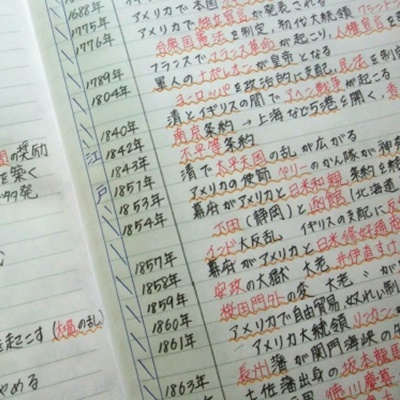 の奨励
を築く
起こす(大塩の乱)
やめる
江戸
1688年
1775年 アメリカで
1776年 アメリカで独立宣言が発表される
合衆国憲法を制定,初代大統領ワシントン
1789年 フランスでフランス革命が起こり,人権宣言を
1804年 軍人のナポレオンが皇帝となる
ヨーロッパを政治的に支配,民法を制定
1840年 清とイギリスの間でアヘン戦争が起こる
1842年 南京条約→上海など5港を開く,香
1843年 不平等条約
1851年 清で太平天国の乱が広がる
1853年 アメリカの使節ペリーのかん隊が神奈
1854年 幕府がアメリカと日米和親条約を結
下田(静岡)と函館(北海道
1857年 インド大反乱 イギリスの支配に反
1858年 幕府がアメリカと日米修好通商
1859年 安政の大獄 大老 井伊直すけ
1860年 桜田門外の変 大老
1861年 アメリカで自由貿易,奴れい制
アメリカ大統領リンカン
1863年 長州藩が関門海峡の
土佐藩出身の坂本龍馬
徳川慶喜